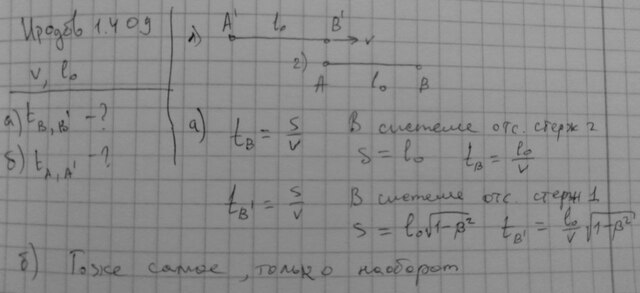 Иродов 1.409
v, l₀
а) t_B, B' - ?
б) t_A, A' - ?
1) A' l₀ B' v
2) A l₀ B
а) t_B = s/v В системе отс. стерж 2
s = l₀ t_B = l₀/v
t_B' = s/v В системе отс. стерж 1
s = l₀√(1-β²) t_B' = l₀/v √(1-β²)
б) Тоже самое, только наоборот